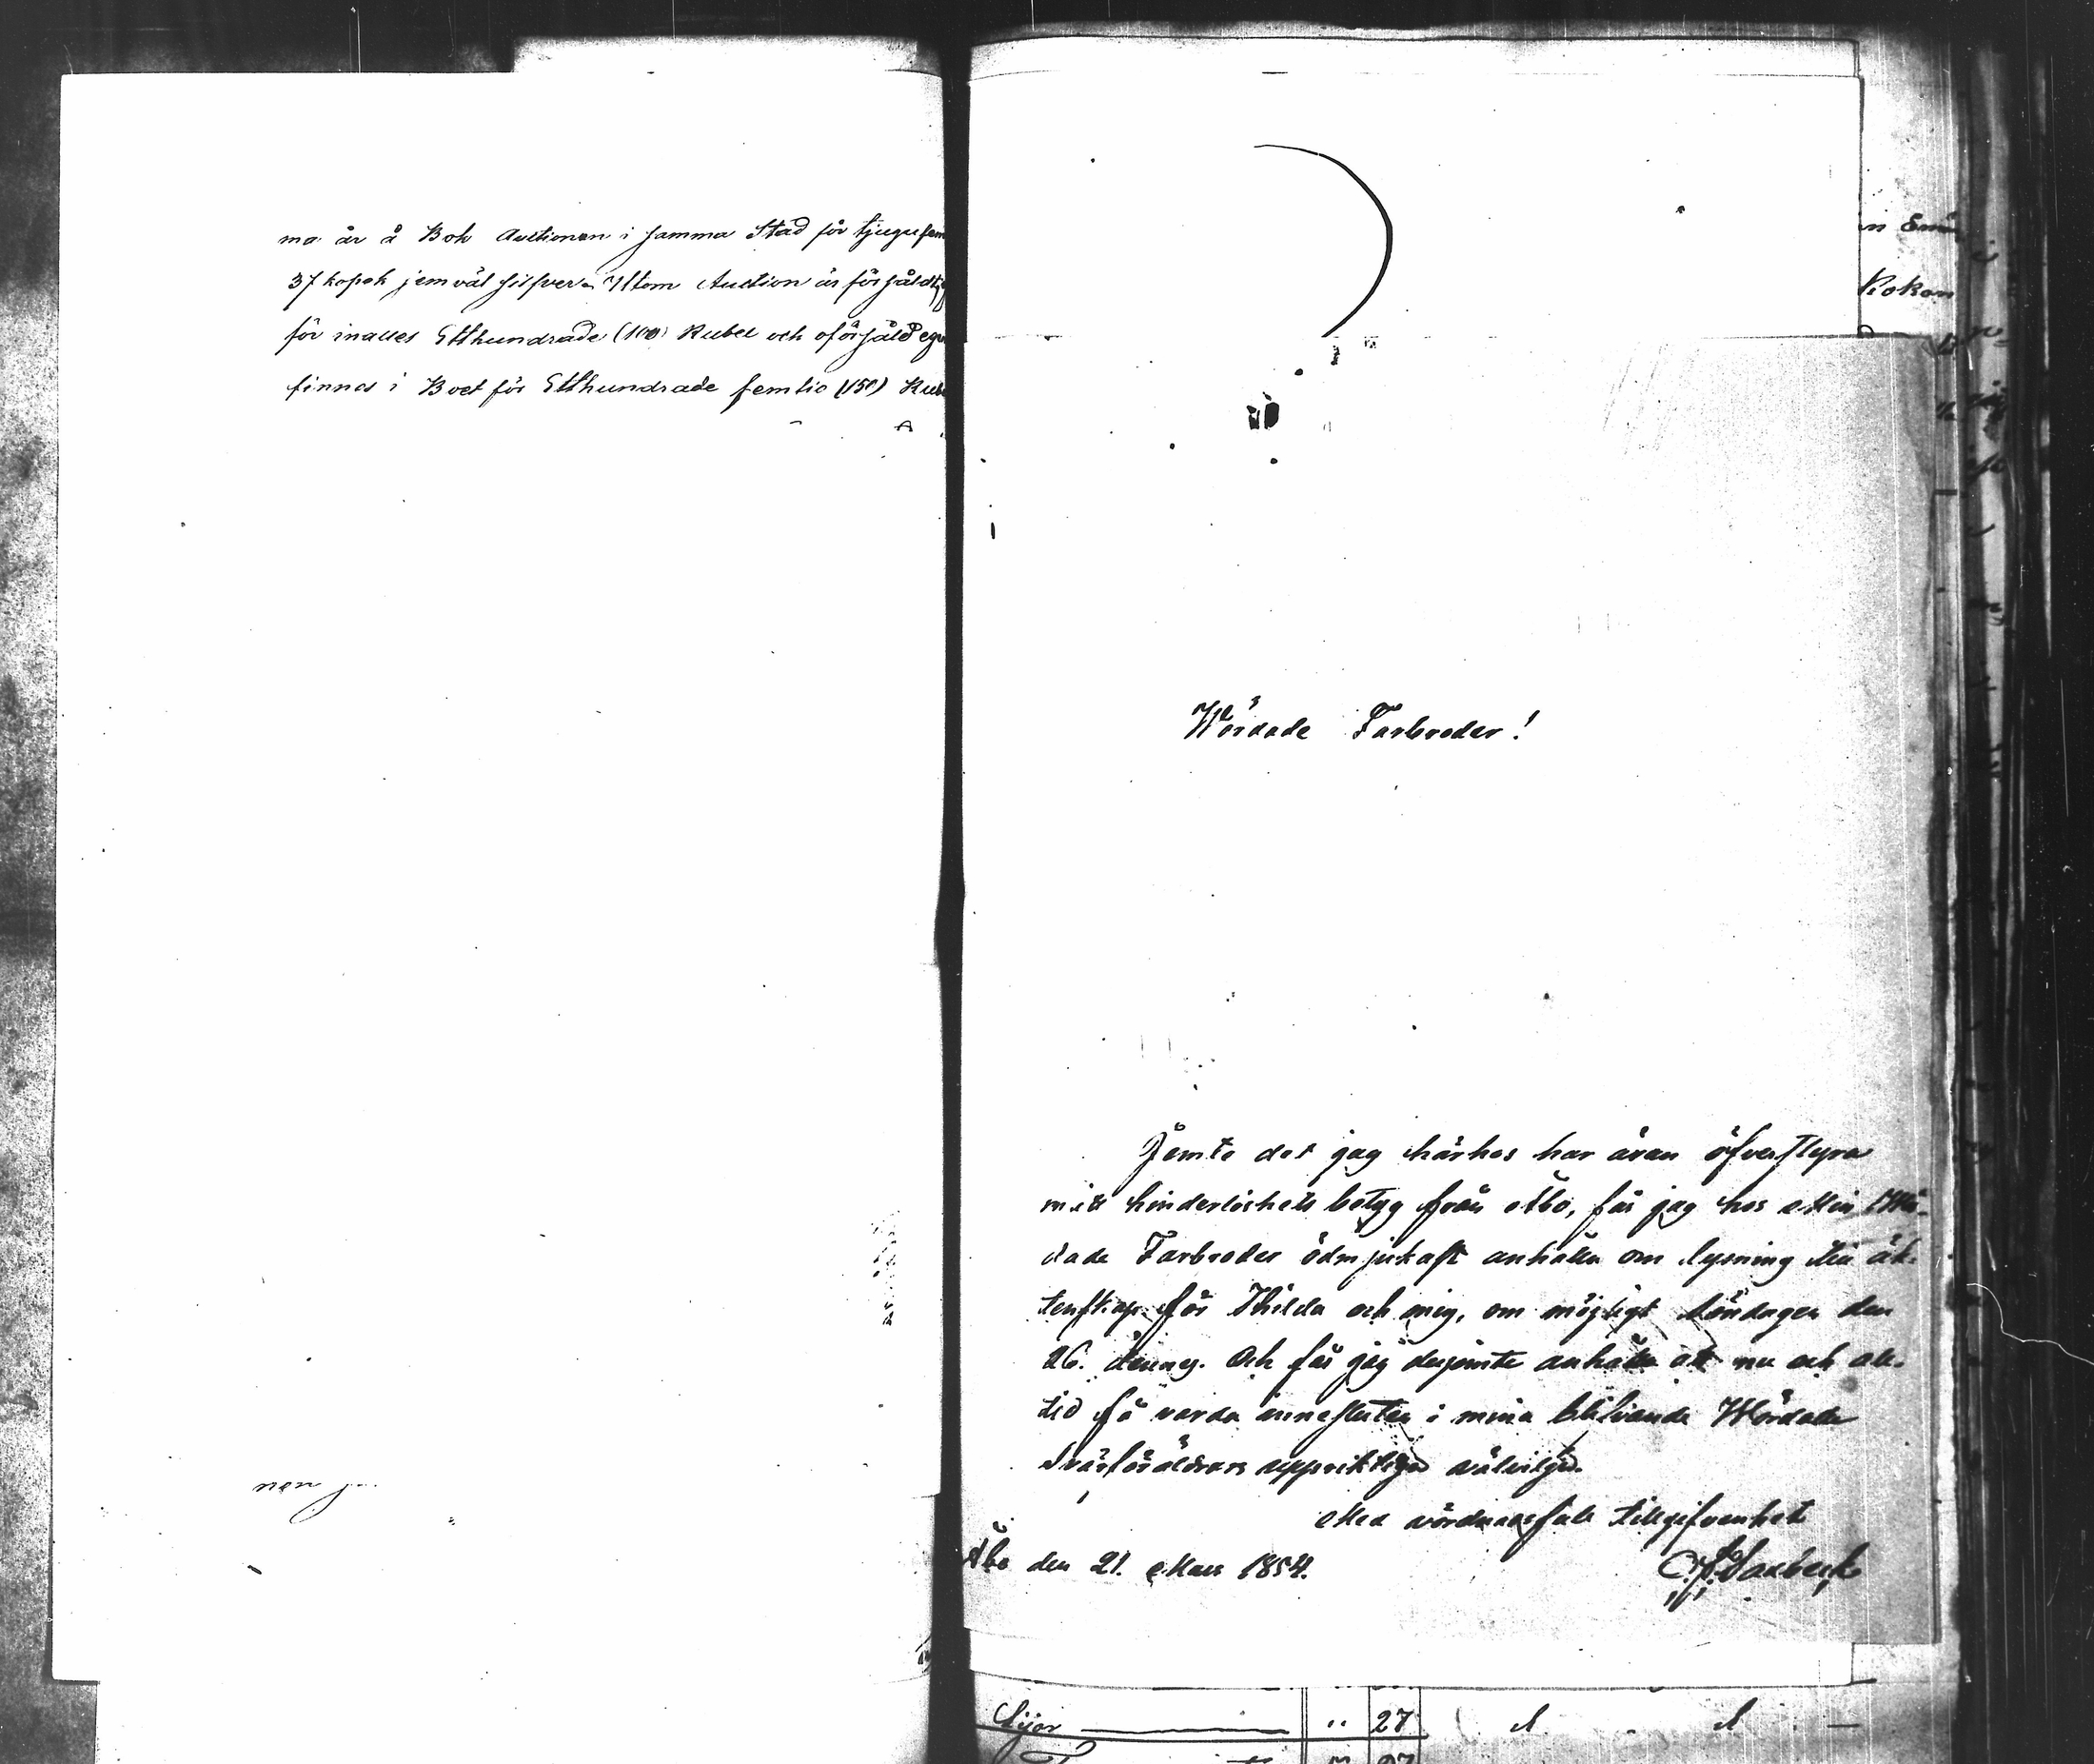 ma år å Bok Auctionen i samma Stad för tjugufem
37 kopek jemväl silfver. Utom Auction är försåldt
för inalles Etthundrade (100) Rubel och oförsåld
finnas i Boet för Etthundrade femtio (150) Rube
Kokon
Wördade Farbroder!
Jemte det jag härhos har äran öfverstyra
mitt hinderlöshets betyg från Åbo, får jag hos Min Wör-
dade Farbroder ödmjukast anhålla om lysning till äk-
tenskap för Thilda och mig, om möjligt Söndagen den
26. dennes. Och får jag derjemte anhålla att nu och all-
tid få varda innesluten i mina blifvande Wördade
Svärföräldrars uppriktiga välvilja.
Med vördnadsfull tillgifvenhet
Åbo den 21. Mars 1854.
27